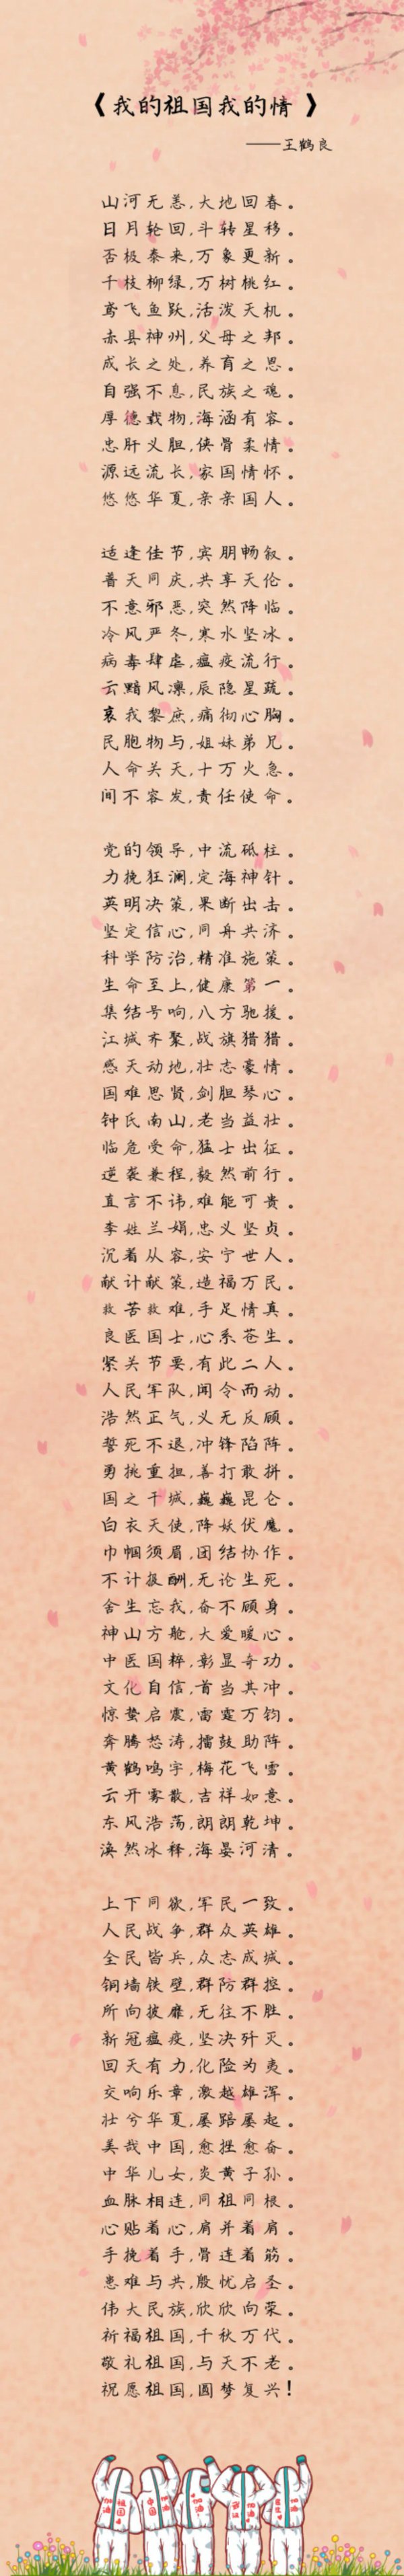 《我的祖国我的情》
——王鹤良
山河无恙,大地回春。
日月轮回,斗转星移。
否极泰来,万象更新。
千枝柳绿,万树桃红。
鸢飞鱼跃,活泼天机。
赤县神州,父母之邦。
成长之处,养育之恩。
自强不息,民族之魂。
厚德载物,海涵有容。
忠肝义胆,侠骨柔情。
源远流长,家国情怀。
悠悠华夏,亲亲国人。
适逢佳节,宾朋畅叙。
普天同庆,共享天伦。
不意邪恶,突然降临。
冷风严冬,寒水坚冰。
病毒肆虐,瘟疫流行。
云黯风凛,辰隐星疏。
哀我黎庶,痛彻心胸。
民胞物与,姐妹弟兄。
人命关天,十万火急。
间不容发,责任使命。
党的领导,中流砥柱。
力挽狂澜,定海神针。
英明决策,果断出击。
坚定信心,同舟共济。
科学防治,精准施策。
生命至上,健康第一。
集结号响,八方驰援。
江城齐聚,战旗猎猎。
感天动地,壮志豪情。
国难思贤,剑胆琴心。
钟氏南山,老当益壮。
临危受命,猛士出征。
逆袭兼程,毅然前行。
直言不讳,难能可贵。
李姓兰娟,忠义坚贞。
沉着从容,安宁世人。
献计献策,造福万民。
救苦救难,手足情真。
良医国士,心系苍生。
紧关节要,有此二人。
人民军队,闻令而动。
浩然正气,义无反顾。
誓死不退,冲锋陷阵。
勇挑重担,善打敢拼。
国之干城,巍巍昆仑。
白衣天使,降妖伏魔。
巾帼须眉,团结协作。
不计报酬,无论生死。
舍生忘我,奋不顾身。
神山方舱,大爱暖心。
中医国粹,彰显奇功。
文化自信,首当其冲。
惊蛰启震,雷霆万钧。
奔腾怒涛,擂鼓助阵。
黄鹤鸣宇,梅花飞雪。
云开雾散,吉祥如意。
东风浩荡,朗朗乾坤。
涣然冰释,海晏河清。
上下同欲,军民一致。
人民战争,群众英雄。
全民皆兵,众志成城。
铜墙铁壁,群防群控。
所向披靡,无往不胜。
新冠瘟疫,坚决歼灭。
回天有力,化险为夷。
交响乐章,激越雄浑。
壮兮华夏,屡踣屡起。
美哉中国,愈挫愈奋。
中华儿女,炎黄子孙。
血脉相连,同祖同根。
心贴着心,肩并着肩。
手挽着手,骨连着筋。
患难与共,殷忧启圣。
伟大民族,欣欣向荣。
祈福祖国,千秋万代。
敬礼祖国,与天不老。
祝愿祖国,圆梦复兴!
加油 加油 加油
祖国 中国